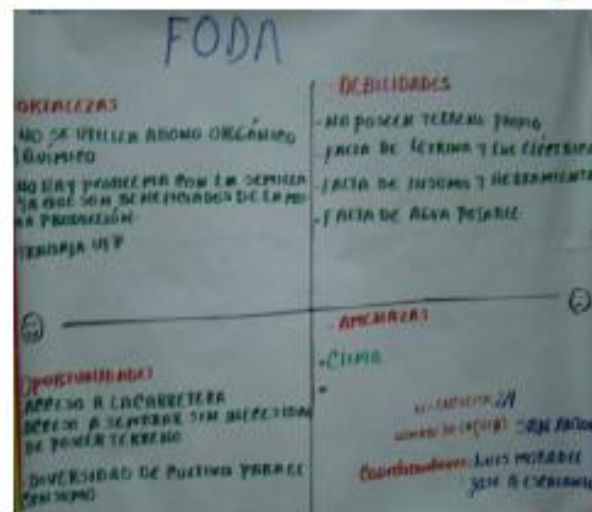 FODA
FORTALEZAS
NO SE UTILIZA ABONO ORGÁNICO
QUÍMICO
NO HAY PROBLEMA CON LA SEMILLA
YA QUE SON BENEFICIADOS DE LA
PRODUCCIÓN
TRABAJA
DEBILIDADES
-NO POSEEN TERRENO PROPIO
-FALTA DE LETRINA Y LUZ ELÉCTRICA
-FALTA DE INSUMO Y HERRAMIENTA
-FALTA DE AGUA POTABLE
OPORTUNIDADES
ACCESO A LA CARRETERA
ACCESO A SEMBRAR SIN NECESIDAD
DE POSEER TERRENO
DIVERSIDAD DE CULTIVO PARA EL
CONSUMO
-AMENAZAS
•CLIMA
LUIS